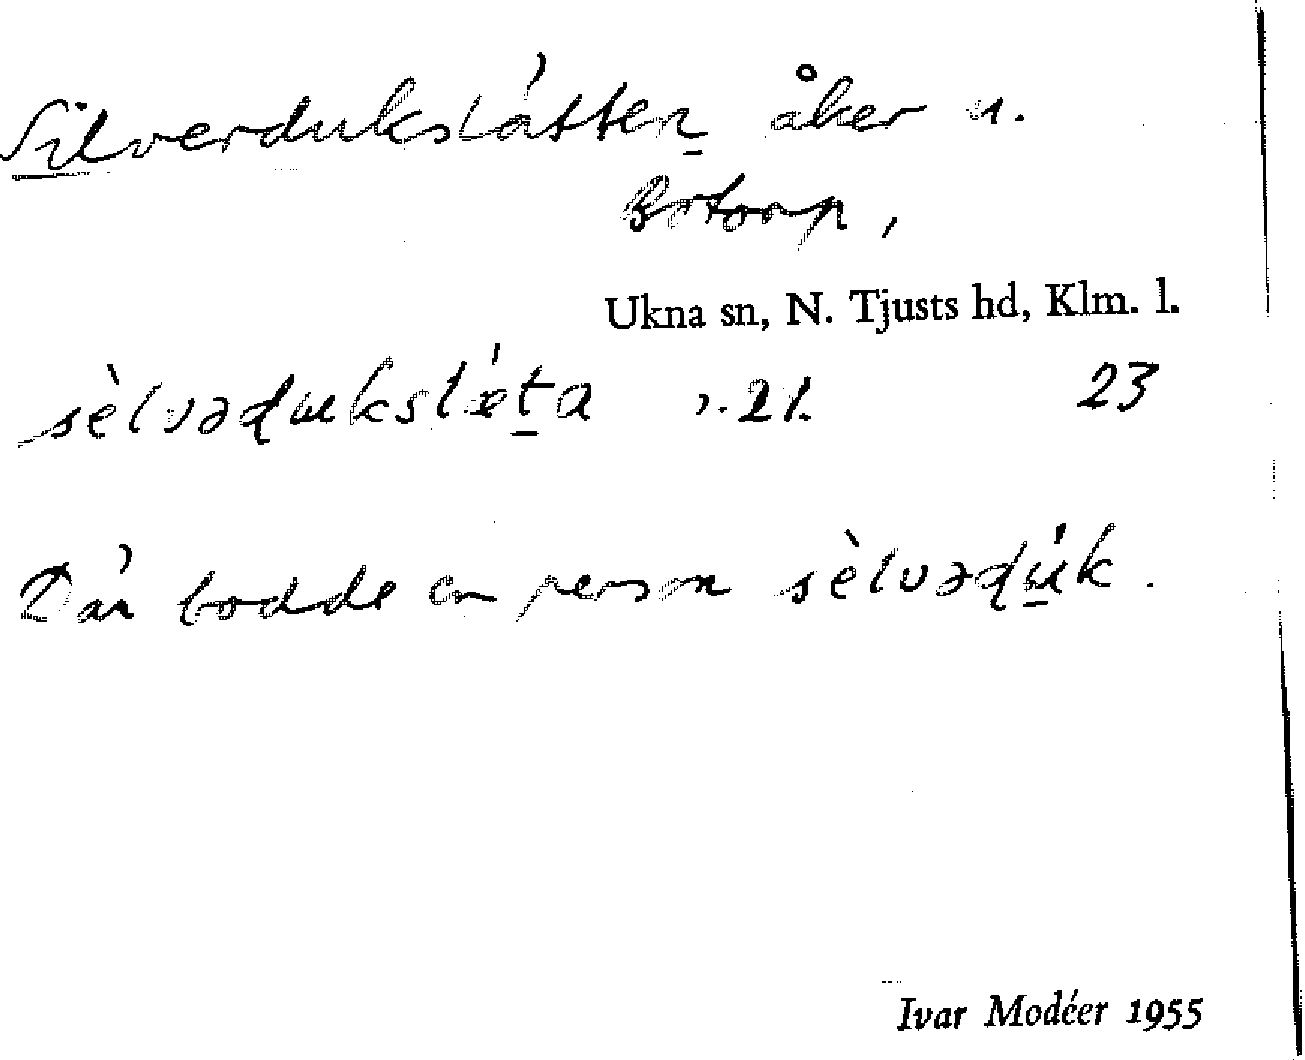 Silverdukslätten åker u.
Botorp,
Ukna sn, N. Tjusts hd, Klm. l.
sèlvəɖukslèta 21. 23
Där bodde en person sèlvəɖuk.
Ivar Modéer 1955